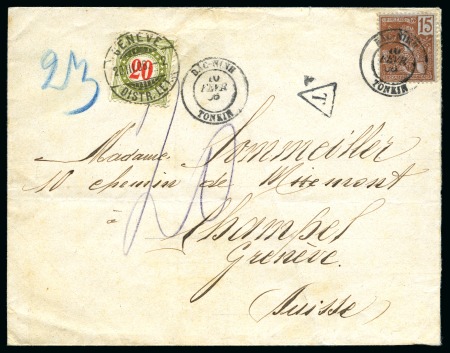 GENÈVE
20
DISTR. LET.
BAC-NINH
10
FEVR
TONKIN
15
BAC-NINH
10
FEVR
TONKIN
T
20
Madame Sommeiller
10 chemin de Miremont
à Champel
Grenève.
Suisse